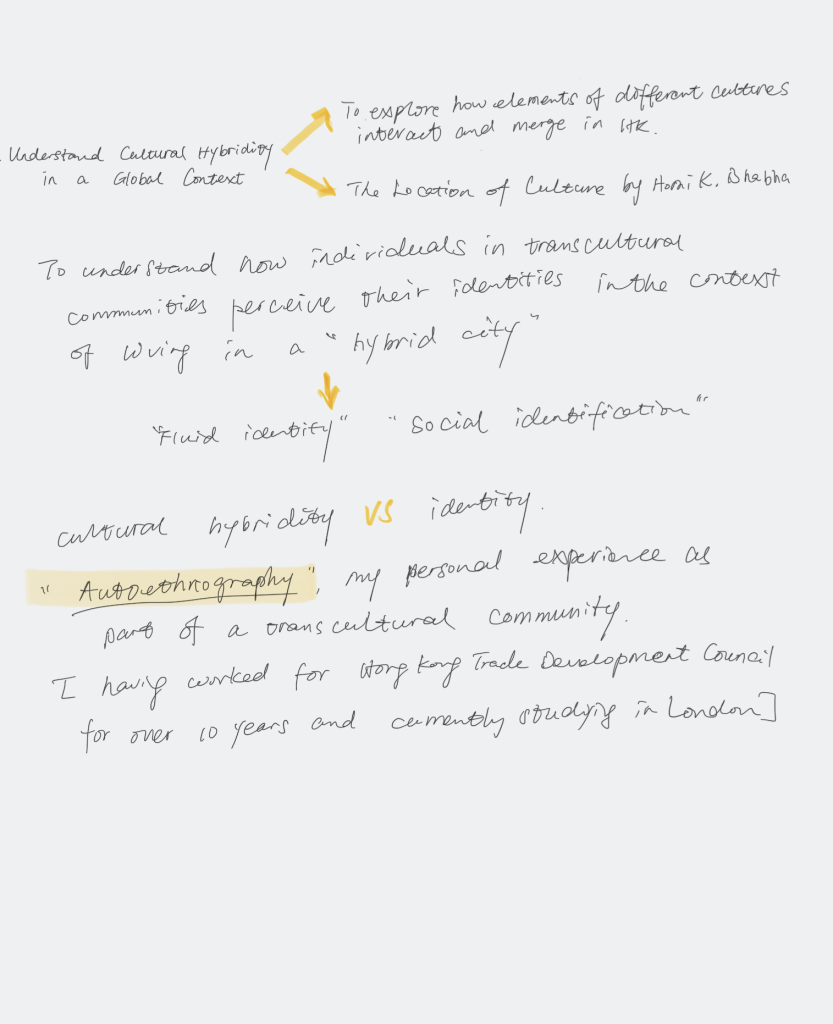 To explore how elements of different cultures
interact and merge in HK.
Understand Cultural Hybridity
in a Global Context
The Location of Culture by Homi K. Bhabha
To understand how individuals in transcultural
communities perceive their identities in the context
of living in a "hybrid city"
"Fluid identity" "Social identification"
cultural hybridity VS identity.
"Autoethnography", my personal experience as
part of a transcultural community.
I having worked for Hong Kong Trade Development Council
for over 10 years and currently studying in London]